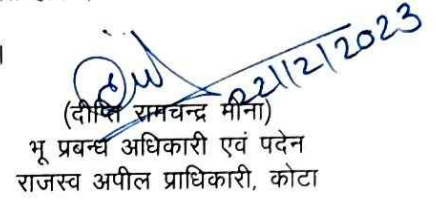 ।
22/12/2023
(दीप्ति रामचन्द्र मीना)
भू प्रबन्ध अधिकारी एवं पदेन
राजस्व अपील प्राधिकारी, कोटा